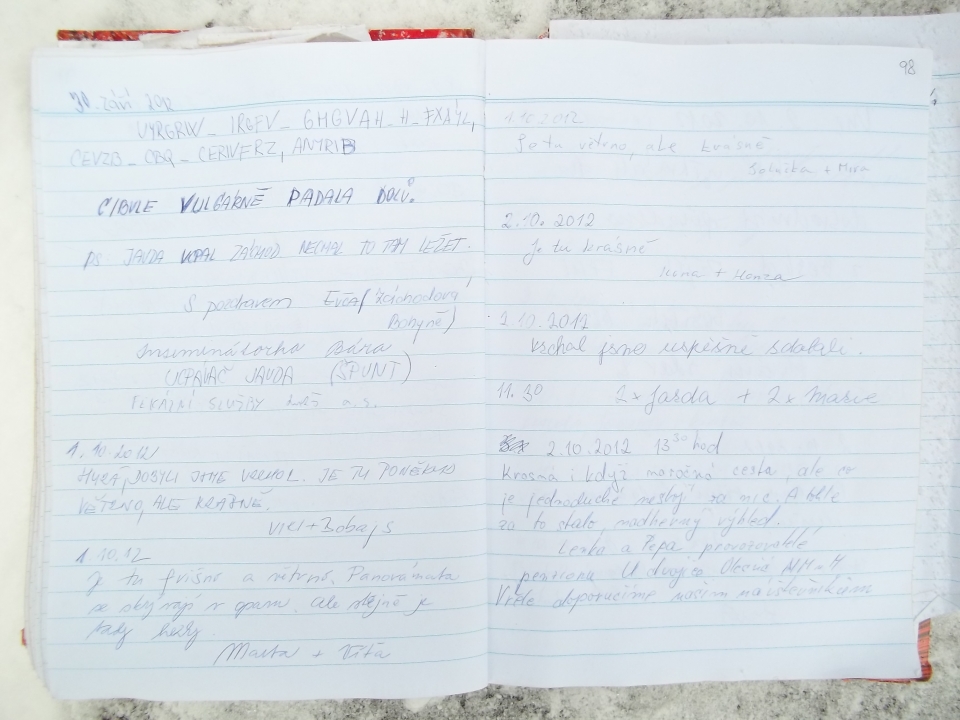 30. září 2012
VYRGRIV_ IRGFV_ GHGVAH_H_FXAYL,
CEVZB_ CBQ_ CERIVFRZ, ANTRIB
CIBULE VULGÁRNĚ PADALA DOLŮ.
PS JAVDA UCPAL ZÁCHOD NECHAL TO TAM LEŽET.
S pozdravem EVČA (Záchodová
Bohyně)
Inseminátorka Bára
UCPÁVAČ JAVDA (ŠPUNT)
SLUŽBY a.s.
1. 10. 2012
HURÁ, DOBYLI JSME VRCHOL. JE TU PONĚKUD
VĚTRNO, ALE KRÁSNĚ.
1. 10. 12
Je tu frišno a větrno.
se skrývají v oparu, ale stejně je
tady hezky.
Marta + Víťa
98
1.10.2012
Je tu větrno, ale krásně
+ Míra
2.10.2012
Je tu krásně
Hana + Honza
2.10.2012
Vrchol jsme úspěšně zdolali.
11.30 2x Jarda + 2x Marie
2.10.2012 13 30 hod
Krásná i když náročná cesta, ale co
je jednoduché nestojí za nic. A bylo
za to stálo, nádherný výhled.
Lenka a Pepa, provozovatelé
penzionu U dvojice
Vřele doporučíme našim návštěvníkům